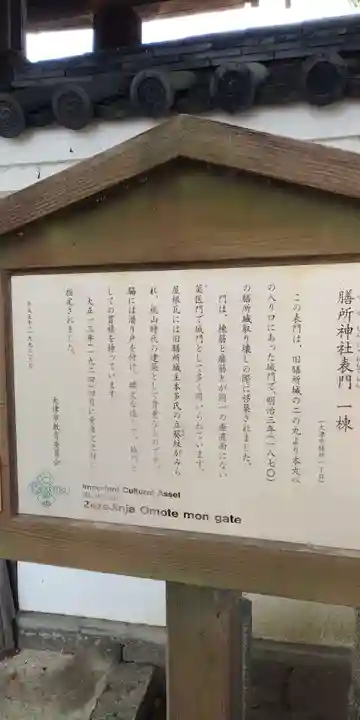 膳所神社表門 一棟
(大津市膳所一丁目)
この表門は、旧膳所城の二の丸より本丸へ
の入り口にあった城門で、明治三年(一八七〇)
の膳所城取り壊しの際に移築されました。
門は、棟筋と扉筋とが同一の垂直面にない
薬医門で城門として多く用いられています。
屋根瓦には旧膳所城主本多氏の立葵紋がみら
れ、桃山時代の建築として貴重なものです。
脇には潜り戸を付け、
しての貫禄を持っています
大正一三年(一九二四)四月に重要文化財に
指定されました。
大津市教育委員会
Important Cultural Asset
ZezeJinja Omote mon gate